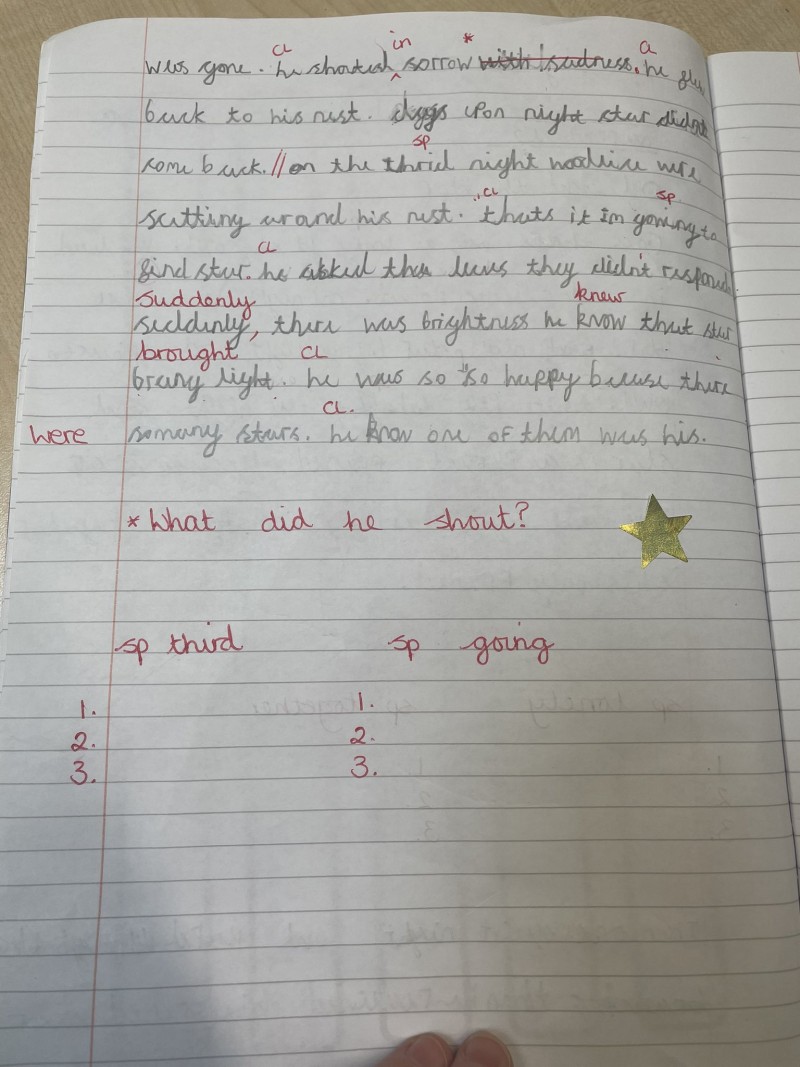 CL in * CL
was gone. he shouted sorrow with sadness. he flew
back to his nest. upon night star didnt
sp
come back. // on the thrid night woodlice were
"CL sp
sattting around his nest. thats it im goning to
CL
find star. he asked the leavs they didn't respond.
suddenly knew
suddenly, there was brightness he know that star
brought CL
brang light. he was so so happy becuse there
CL.
were somany stars. he know one of them was his.
* What did he shout?
sp third sp going
1. 1.
2. 2.
3. 3.